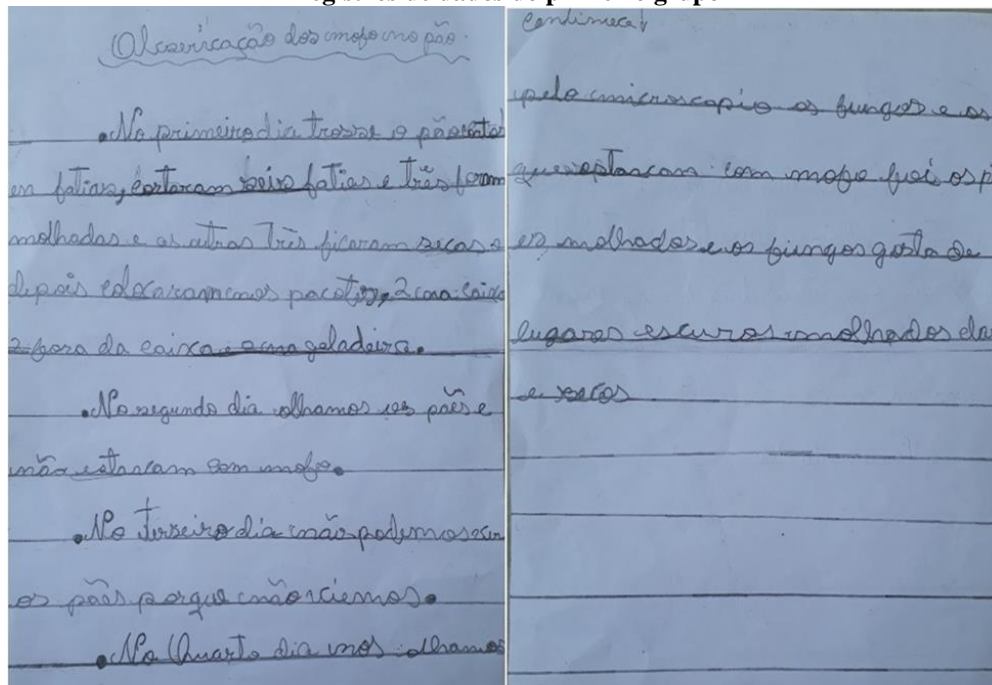 Observação dos mofo no pão.
.No primeiro dia trosse o pão
em fatias, cortaram seis fatias e três foram
molhadas e as outras três ficaram secas e
depois colocaram nos pacotes, 2 na caixa
2 fora da caixa e na geladeira.
.No segundo dia olhamos os pães e
não estavam com mofo.
.No terseiro dia não podemos ver
os pães porque não viemos.
.No Quarto dia nos olhamos
Continuca!
pelo microscopio os fungos e os
que estavam com mofo foi os p
es molhados e os fungos gosta de
lugares escuros molhados cla
e secos